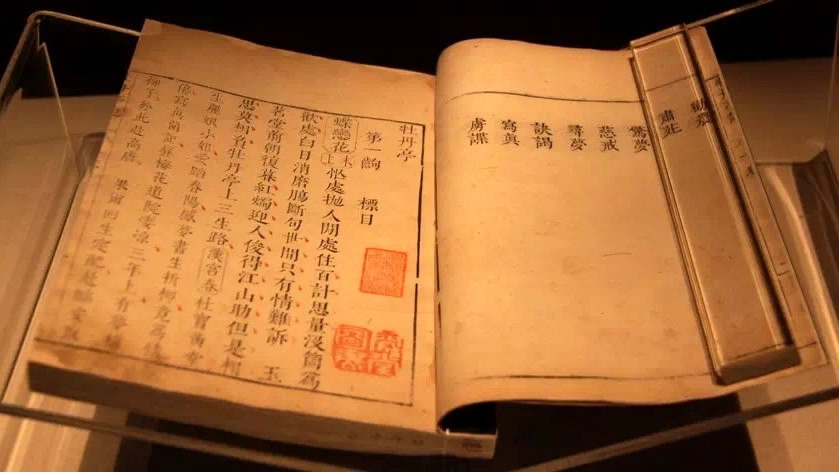 勸農
肅苑
驚夢
慈戒
尋夢
訣謁
寫真
虜諜
牡丹亭
第一齣 標目
蝶戀花 末上 忙處拋人閒處住百計思量沒箇為
歡處白日消磨腸斷句世間只有情難訴 玉
茗堂前朝復暮紅燭迎人俊得江山助但是相
思莫相負牡丹亭上三生路 漢宮春 杜寶黃堂
生麗娘小姐愛踏春陽感夢書生折柳竟為情
傷寫真留記葬梅花道院淒涼三年上有夢梅
柳子於此赴高唐 果爾回生定配赴臨安取